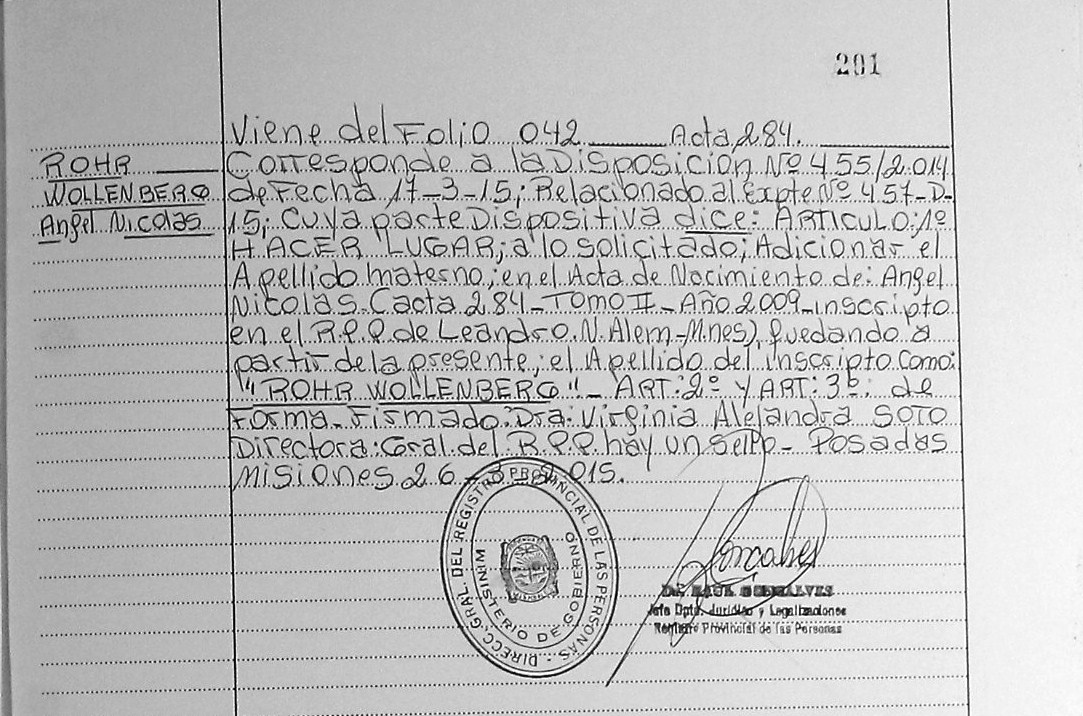 201
Viene del Folio 042 ____ Acta 284.
ROHR
WOLLENBERG
Angel Nicolas
Corresponde a la Disposición Nº 455/2.014
de Fecha 17-3-15; Relacionado al Expte Nº 457-D-
15; Cuya parte Dispositiva dice: ARTICULO:1º
HACER LUGAR; a lo solicitado; Adicionar el
Apellido materno; en el Acta de Nacimiento de: Angel
Nicolas. Cacta 284-Tomo II-Año 2009-inscripto
en el R.P.P. de Leandro.N.Alem-Mnes), quedando a
partir de la presente; el Apellido del inscripto Como:
"ROHR WOLLENBERG"- ART:2º Y ART:3º: de
Forma-Firmado:Dra:Virginia Alejandra SOTO
Directora:Gral.del R.P.P. hay un sello- Posadas
Misiones 26-3-2.015.
DIRECC. GRAL. DEL REGISTRO PROVINCIAL DE LAS PERSONAS
MINISTERIO DE GOBIERNO
Dr. RAUL GONSALVES
Jefe Dpto. Jurídico y Legalizaciones
Registro Provincial de las Personas